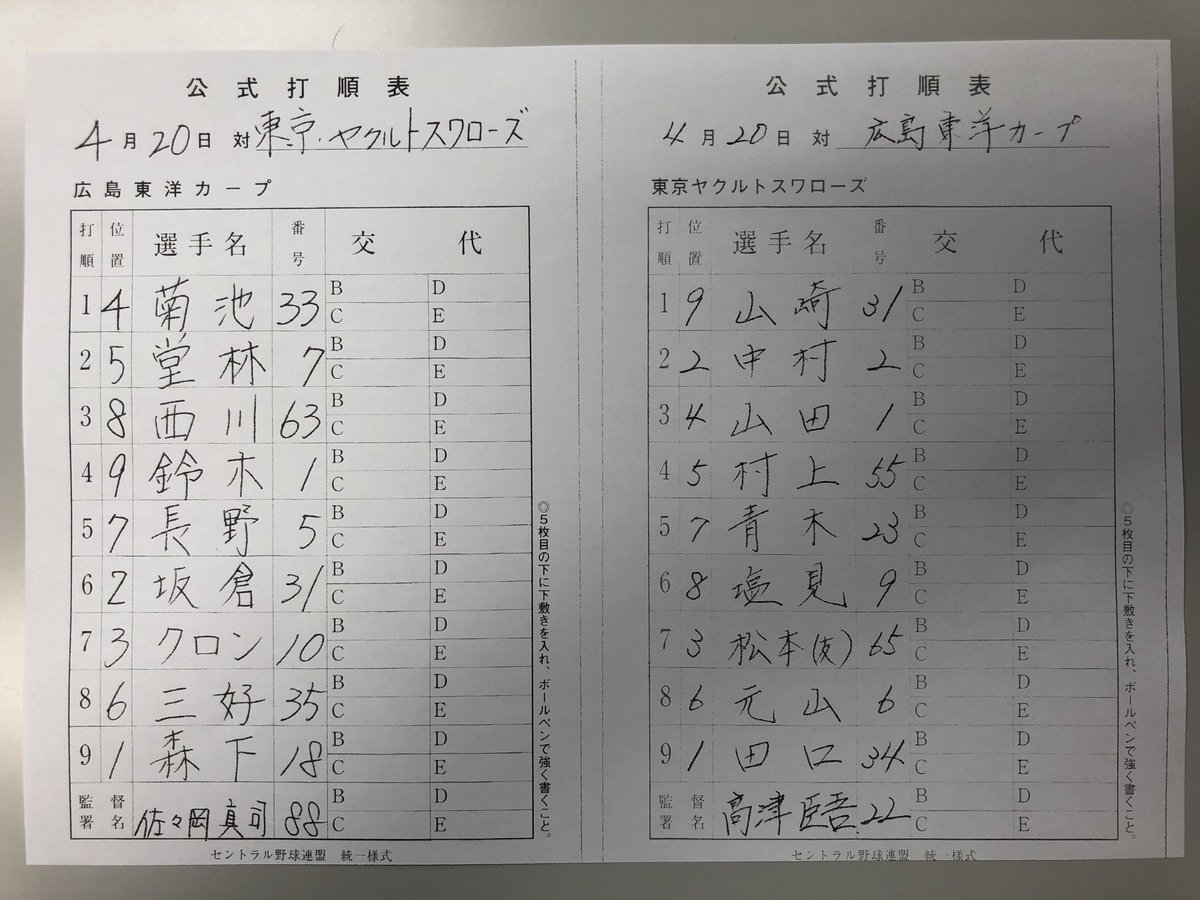 公式打順表
4月20日 対 東京ヤクルトスワローズ
広島東洋カープ
打順 位置 選手名 番号 交代
1 4 菊池 33 B D C E
2 5 堂林 7 B D C E
3 8 西川 63 B D C E
4 9 鈴木 1 B D C E
5 7 長野 5 B D C E
6 2 坂倉 31 B D C E
7 3 クロン 10 B D C E
8 6 三好 35 B D C E
9 1 森下 18 B D C E
監督署名 佐々岡真司 88 B D C E
◎5枚目の下に下敷きを入れ、ボールペンで強く書くこと。
セントラル野球連盟 統一様式
公式打順表
4月20日 対 広島東洋カープ
東京ヤクルトスワローズ
打順 位置 選手名 番号 交代
1 9 山崎 31 B D C E
2 2 中村 2 B D C E
3 4 山田 1 B D C E
4 5 村上 55 B D C E
5 7 青木 23 B D C E
6 8 塩見 9 B D C E
7 3 松本(友) 65 B D C E
8 6 元山 6 B D C E
9 1 田口 34 B D C E
監督署名 高津臣吾 22 B D C E
◎5枚目の下に下敷きを入れ、ボールペンで強く書くこと。
セントラル野球連盟 統一様式